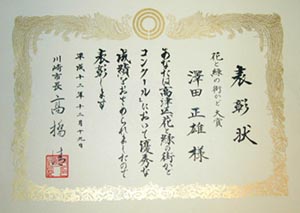 表彰状
花と緑の街かど大賞
澤田 正雄 様
あなたは高津区花と緑の街かど
コンクールにおいて優秀な
成績をおさめられましたので
表彰します
平成十二年十二月十九日
川崎市長 高橋 清